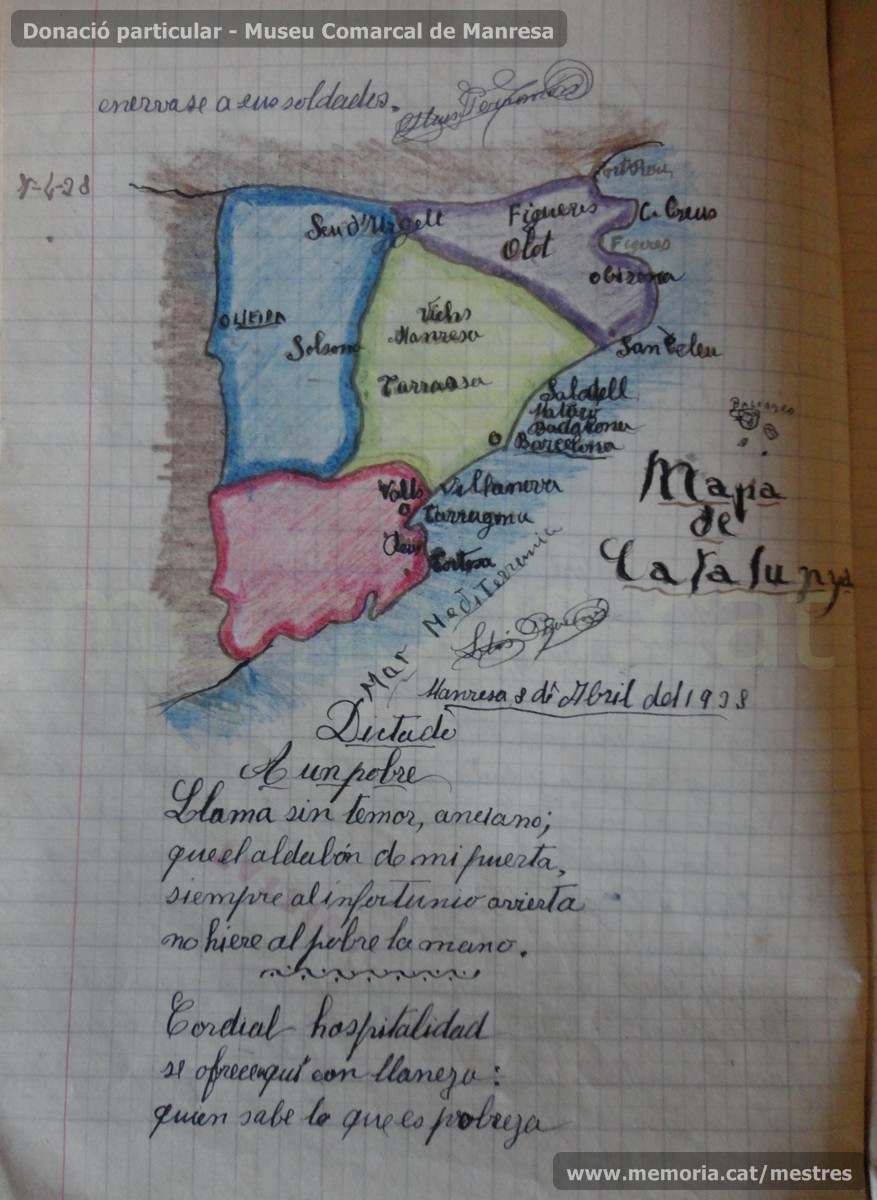 Donació particular - Museu Comarcal de Manresa
enervase a sus soldados.
Seu d'Urgell
Figueres
Olot
C. Creus
Figueres
Girona
LLEIDA
Solsona
Vichs
Manresa
Tarrassa
San Celeu
Sabadell
Mataró
Badalona
Barcelona
BALEARES
Mapa
de
Catalunya
Valls
Villanova
Tarragona
Reus
Tortosa
Mar Mediterrania
Manresa 8 de Abril del 1938
Dictado
A un pobre
Llama sin temor, anciano;
que el aldabón de mi puerta,
siempre al infortunio avierta
no hiere al pobre la mano.
Cordial hospitalidad
se ofrece aqui con llaneza:
quien sabe lo que es pobreza
www.memoria.cat/mestres